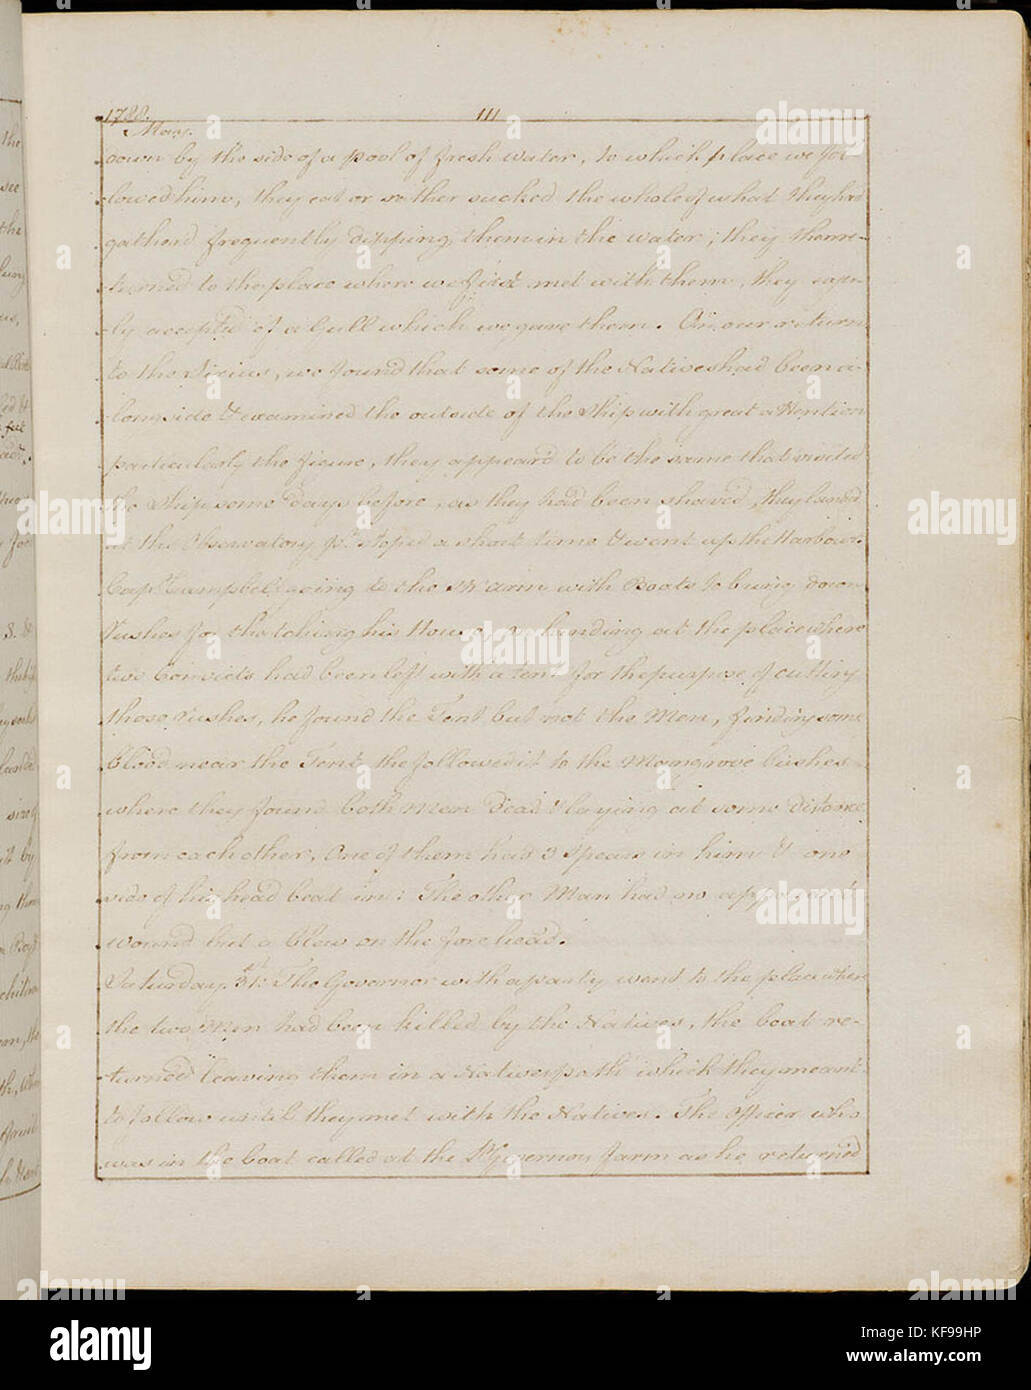 1788. 111
May.
down by the side of a pool of fresh water, to which place we fol
lowed him, they eat or rather sucked the whole of what they had
gather'd frequently dipping them in the water; they then re-
turned to the place where we first met with them, they
ly accepted of a Gull which we gave them. On our return
to the Sirius, we found that some of the Natives had been a-
longside & examined the outside of the Ship with great attention
particularly the figure, they appear'd to be the same that visited
the Ship some days before, as they had been shaved, they landed
at the Observatory pt. stoped a short time & went up the Harbour.
Capt. Campbell going to the arm with Boats to bring down
Rushes for thatching his House, on landing at the place where
two Convicts had been left with a tent for the purpose of cutting
those rushes, he found the Tent but not the Men, finding some
blood near the Tent he followed it to the Mangrove bushes
where they found both Men dead & laying at some distance
from each other, One of them had 3 Spears in him & one
side of his head beat in: The other Man had no apparent
wound but a blow on the forehead.
Saturday 31st. The Governor with a party went to the place where
the two Men had been killed by the Natives, the boat re-
turned leaving them in a Natives path which they meant
to follow until they met with the Natives. The Officer who
was in the boat called at the Lt Governors farm as he returned
the
see
the
us,
S.
it by
alamy stock photo
a
alamy
Image ID: KF99HP
www.alamy.com